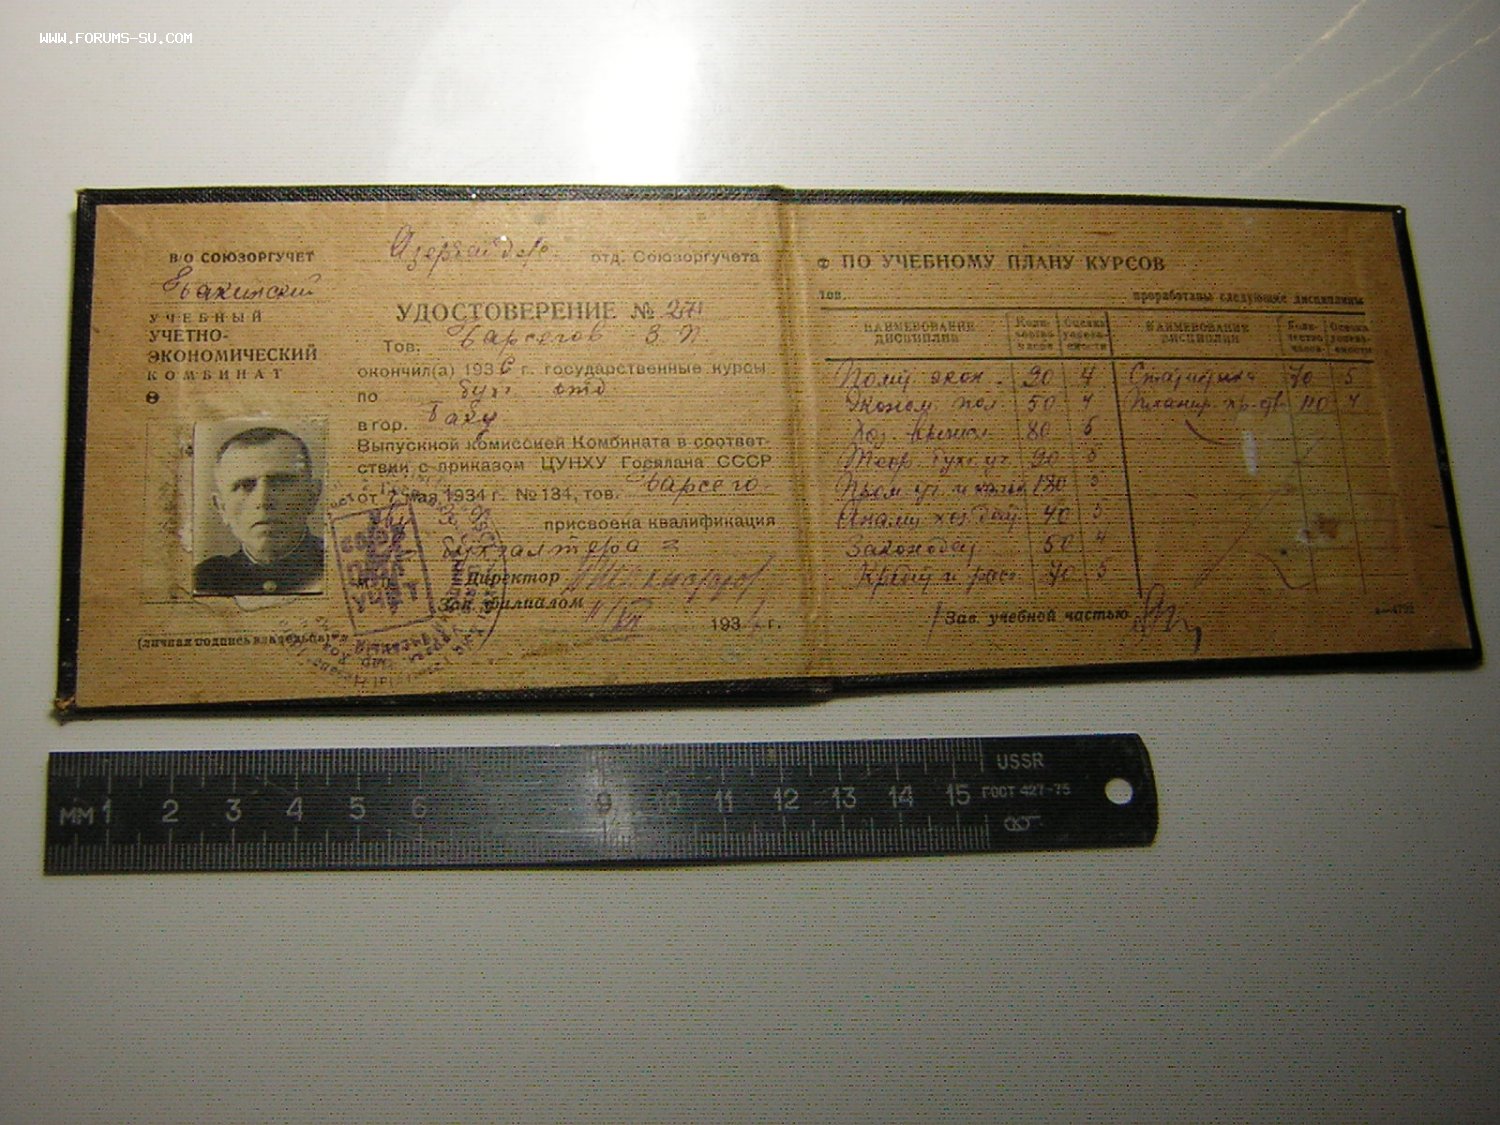 WWW.FORUMS-SU.COM
В/О СОЮЗОРГУЧЕТ
Бакинский
УЧЕБНЫЙ
УЧЕТНО-
ЭКОНОМИЧЕСКИЙ
КОМБИНАТ
(личная подпись владельца)
Азербайдж. отд. Союзоргучета
УДОСТОВЕРЕНИЕ №
Тов. Барсегов З. П.
окончил(а) 1936 г. государственные курсы
по бух. отд
в гор. Баку
Выпускной комиссией Комбината в соответ-
ствии с приказом ЦУНХУ Госплана СССР
от 7 мая 1934 г. № 134, тов. Барсего-
присвоена квалификация
бухгалтера
Директор
Зав. филиалом
193 г.
ПО УЧЕБНОМУ ПЛАНУ КУРСОВ
тов. проработаны следующие дисциплины
НАИМЕНОВАНИЕ ДИСЦИПЛИН Коли-чество часов Оценка успева-емости НАИМЕНОВАНИЕ ДИСЦИПЛИН Коли-чество часов Оценка успева-емости
Полит экон. 90 4 Статистика 70 5
Эконом. пол. 50 4 Планир. пр-ва 110 4
80 5
Теор. бух. уч. 90 5
Пром. уч. и 5
Анализ хоз. деят. 40 5
Законодат. 50 4
Кредит и рас. 40 5
Зав. учебной частью
MM 1 2 3 4 5 6 9 10 11 12 13 14 15
USSR
ГОСТ 427-75